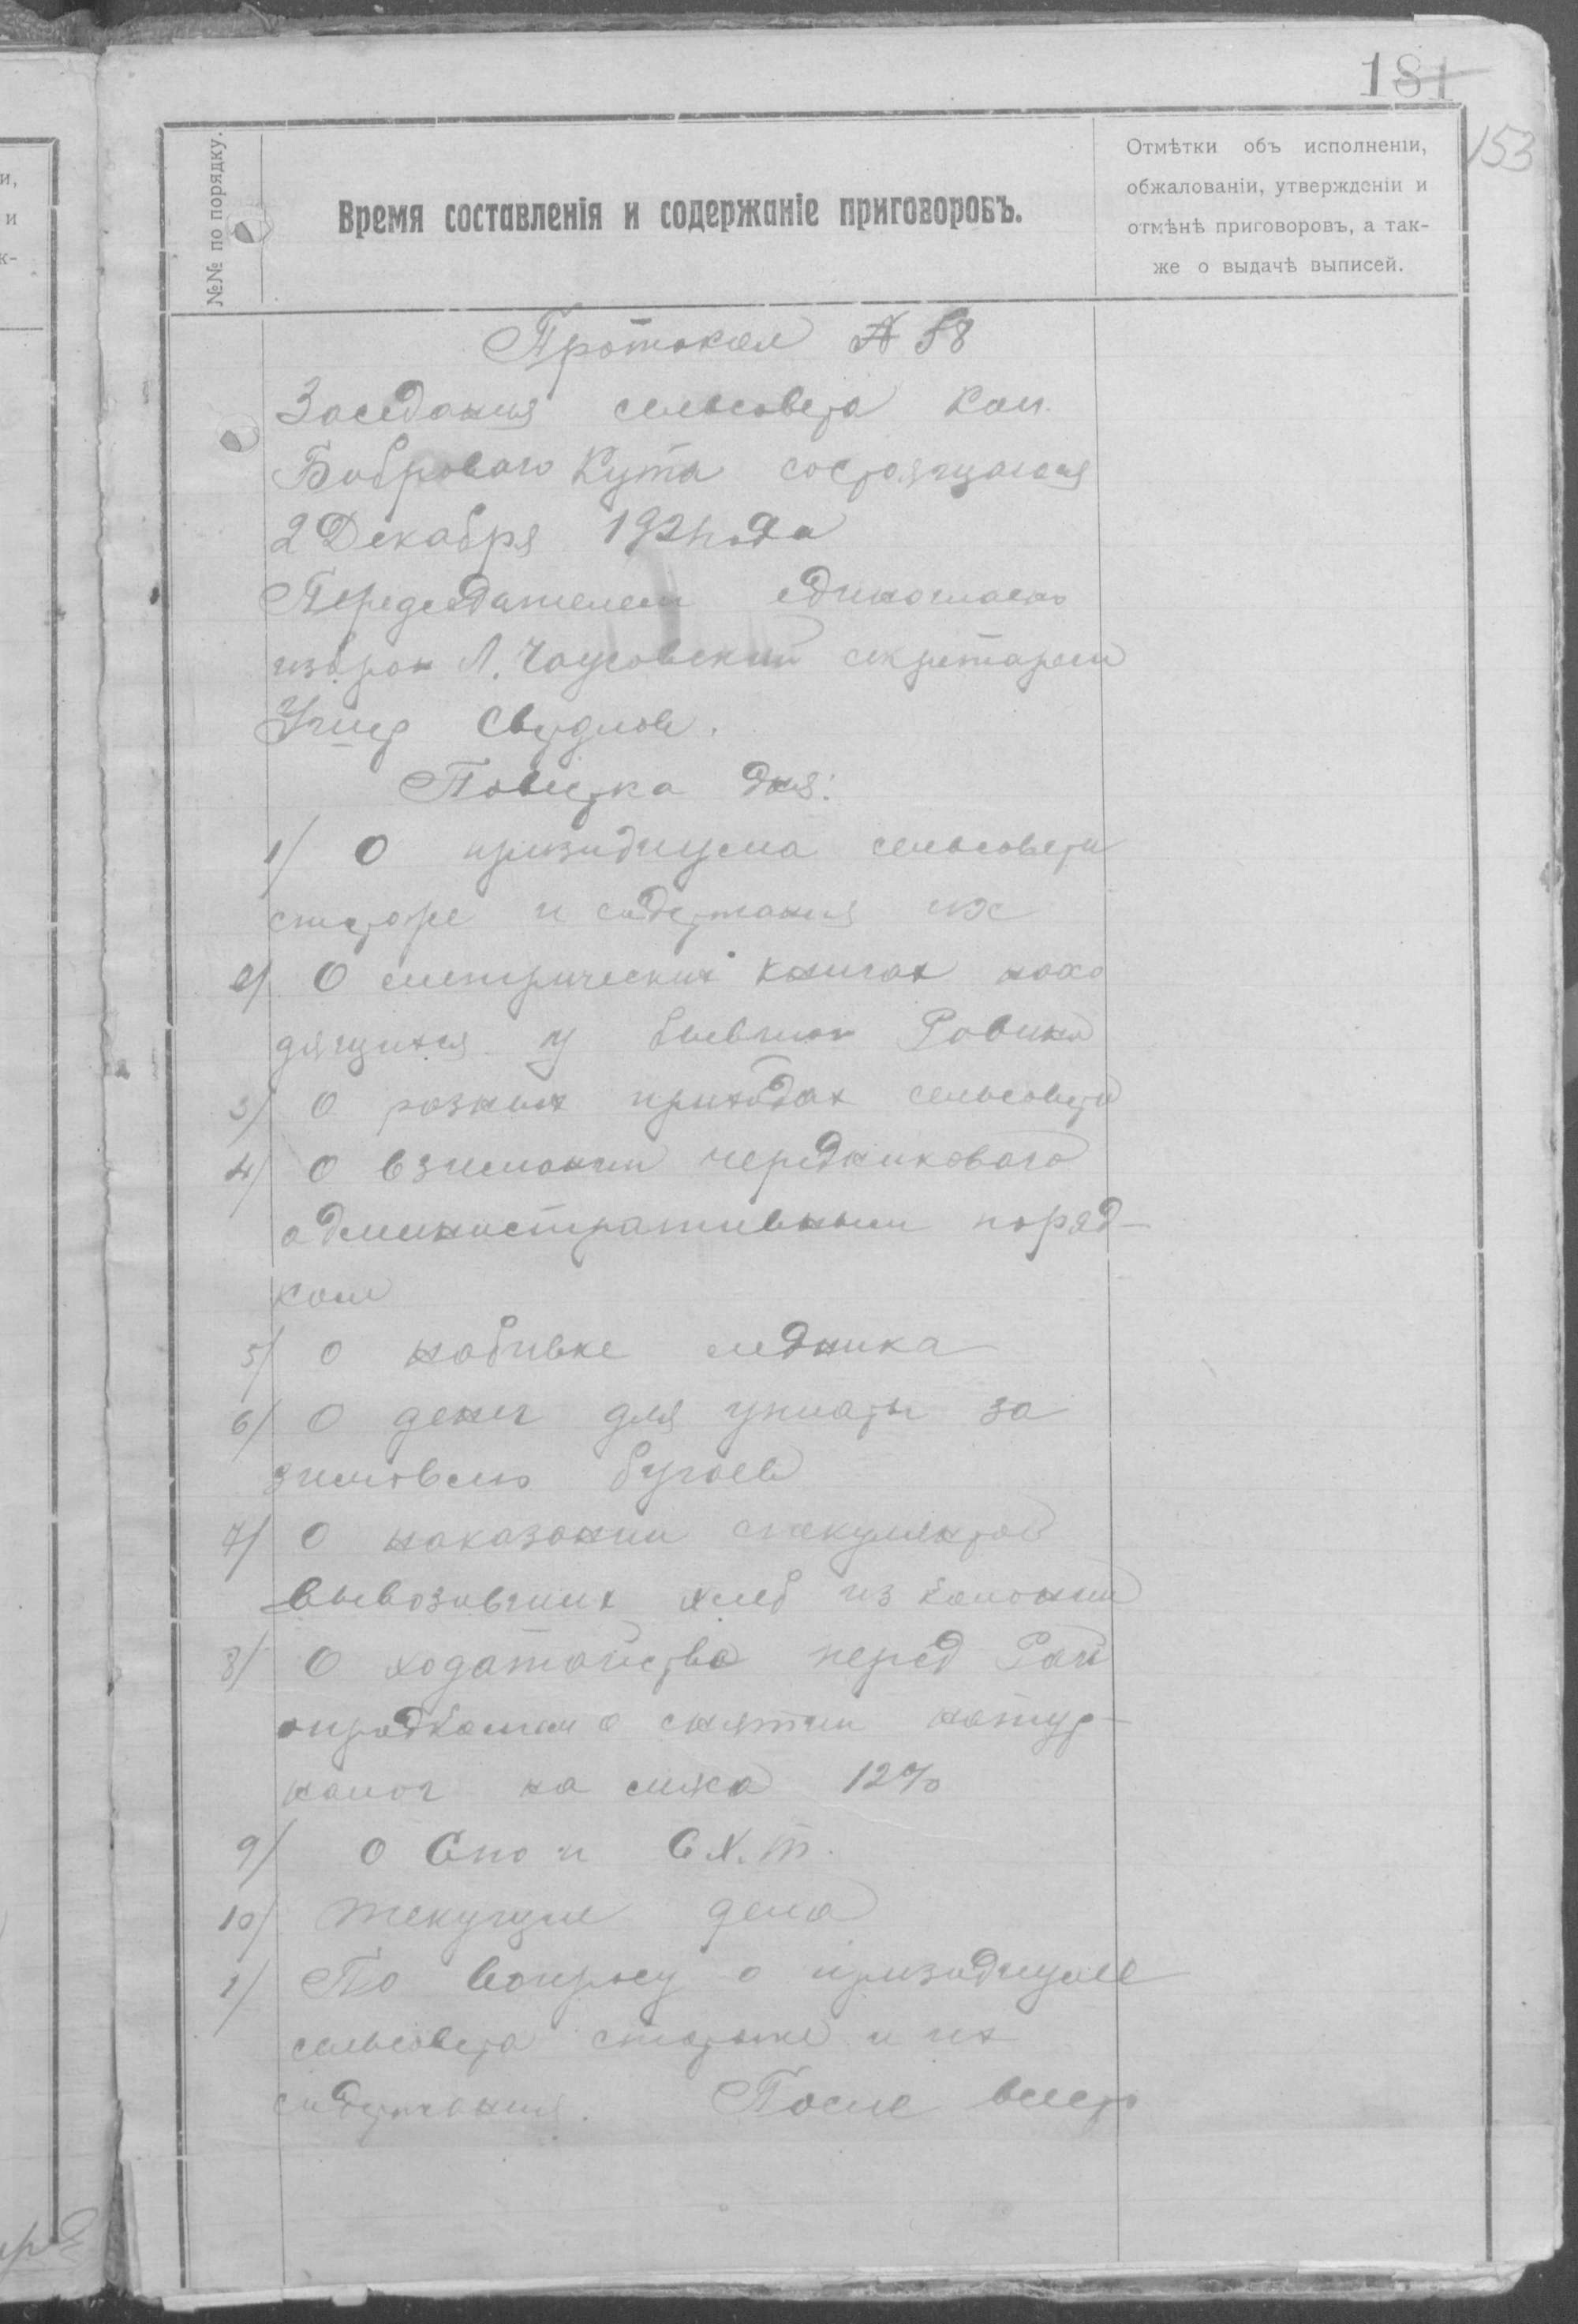 181
153
№№ по порядку.
Время составленія и содержаніе приговоровъ.
Отмѣтки объ исполненіи,
обжалованіи, утвержденіи и
отмѣнѣ приговоровъ, а так-
же о выдачѣ выписей.
Протокол № 58
Заседания сельсовета Кол.
Боброваго Кута состоящагося
2 Декабря 192 года
Председателем единогласно
избран Л. секретарем
Повестка дня:
1/ О призидиума сельсовета
и содержания их
2/ О метрических книгах нахо
дящихся у бывших Равина
3/ О разных приходах сельсовета
4/ О взимании чередниковаго
административным поряд-
ком
5/ О набивке ледника
6/ О денег для уплаты за
зимовлю бугаев
7/ О наказании спекулянтов
вывозивших хлеб из колонии
8/ О ходатайства перед Рай
о снятии натур-
налог на 12%
9/ О Спо и С Х. Т.
10/ Текущие дела
1/ По вопросу о призидиуме
сельсовета стороже и их
содержания. После всест